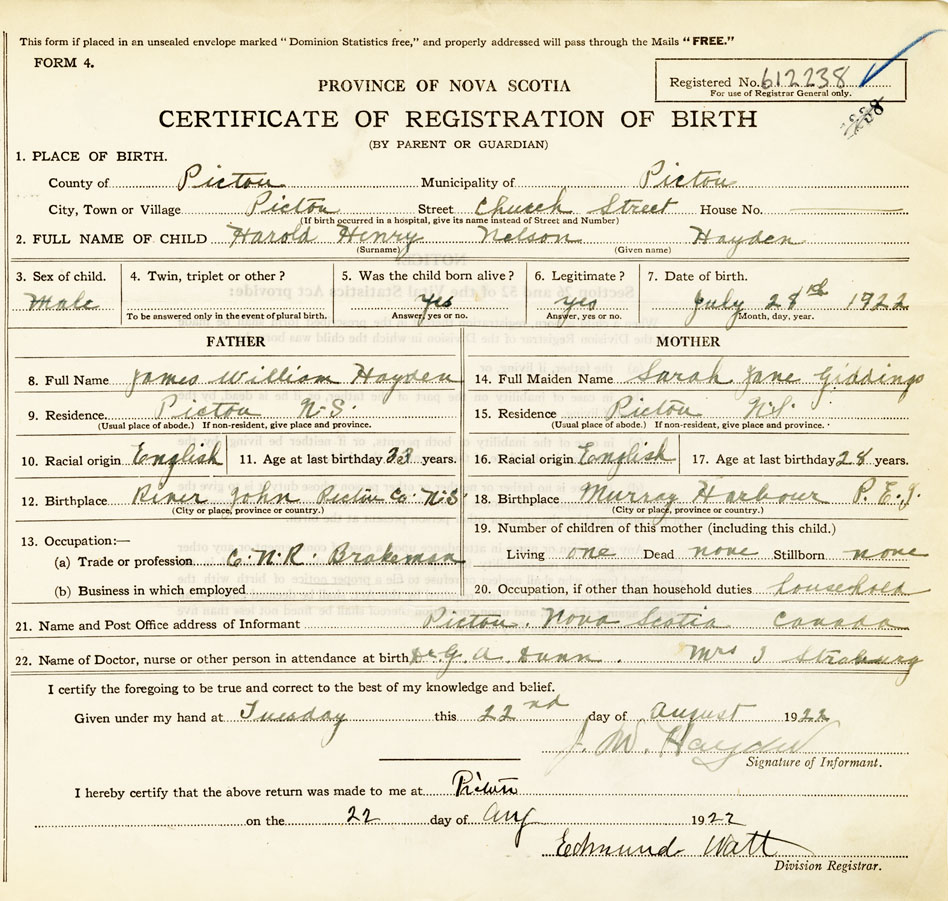 This form if placed in an unsealed envelope marked "Dominion Statistics free," and properly addressed will pass through the Mails "FREE."
FORM 4.
Registered No. 612238
For use of Registrar General only.
PROVINCE OF NOVA SCOTIA
CERTIFICATE OF REGISTRATION OF BIRTH
(BY PARENT OR GUARDIAN)
1. PLACE OF BIRTH.
County of Pictou Municipality of Pictou
City, Town or Village Pictou Street Church Street House No.
(If birth occurred in a hospital, give its name instead of Street and Number)
2. FULL NAME OF CHILD Harold Henry Nelson Hayden
(Surname) (Given name)
3. Sex of child. 4. Twin, triplet or other? 5. Was the child born alive? 6. Legitimate? 7. Date of birth.
Male yes yes July 28th 1922
To be answered only in the event of plural birth. Answer, yes or no. Answer, yes or no. Month, day, year.
FATHER MOTHER
8. Full Name James William Hayden 14. Full Maiden Name Sarah Jane Giddings
9. Residence Pictou N.S. 15. Residence Pictou N.S.
(Usual place of abode.) If non-resident, give place and province. (Usual place of abode.) If non-resident, give place and province.
10. Racial origin English 11. Age at last birthday 33 years. 16. Racial origin English 17. Age at last birthday 28 years.
12. Birthplace River John Pictou Co. N.S 18. Birthplace Murray Harbour P.E.I.
(City or place, province or country.) (City or place, province or country.)
19. Number of children of this mother (including this child.)
13. Occupation:—
(a) Trade or profession C.N.R. Brakeman Living one Dead none Stillborn none
(b) Business in which employed 20. Occupation, if other than household duties household
21. Name and Post Office address of Informant Pictou. Nova Scotia Canada
22. Name of Doctor, nurse or other person in attendance at birth Dr. G. A. Dunn. Mrs J
I certify the foregoing to be true and correct to the best of my knowledge and belief.
Given under my hand at Tuesday this 22nd day of august 1922
J. W. Hayden
Signature of Informant.
I hereby certify that the above return was made to me at Pictou
on the 22 day of Aug 1922
Edmund Watt
Division Registrar.